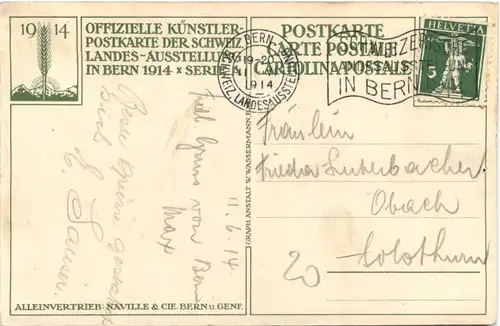 19 14
OFFIZIELLE KÜNSTLER-
POSTKARTE DER SCHWEIZ.
LANDES-AUSSTELLUNG
IN BERN 1914 × SERIE
POSTKARTE
CARTE POSTALE
CARTOLINA POSTALE
BERN
19-20
1914
SCHWEIZ. LANDESAUSSTELLUNG
SCHWEIZERISCHE
LANDESAUSSTELLUNG
IN BERN
HELVETIA
5
Beste Grüsse
Viel Grüsse von Bern
Max
11. 6. 14.
GRAPH. ANSTALT W. WASSERMANN,
Fräulein
Frieda Luterbacher
Obach
Solothurn
20
ALLEINVERTRIEB: NAVILLE & CIE. BERN U. GENF.